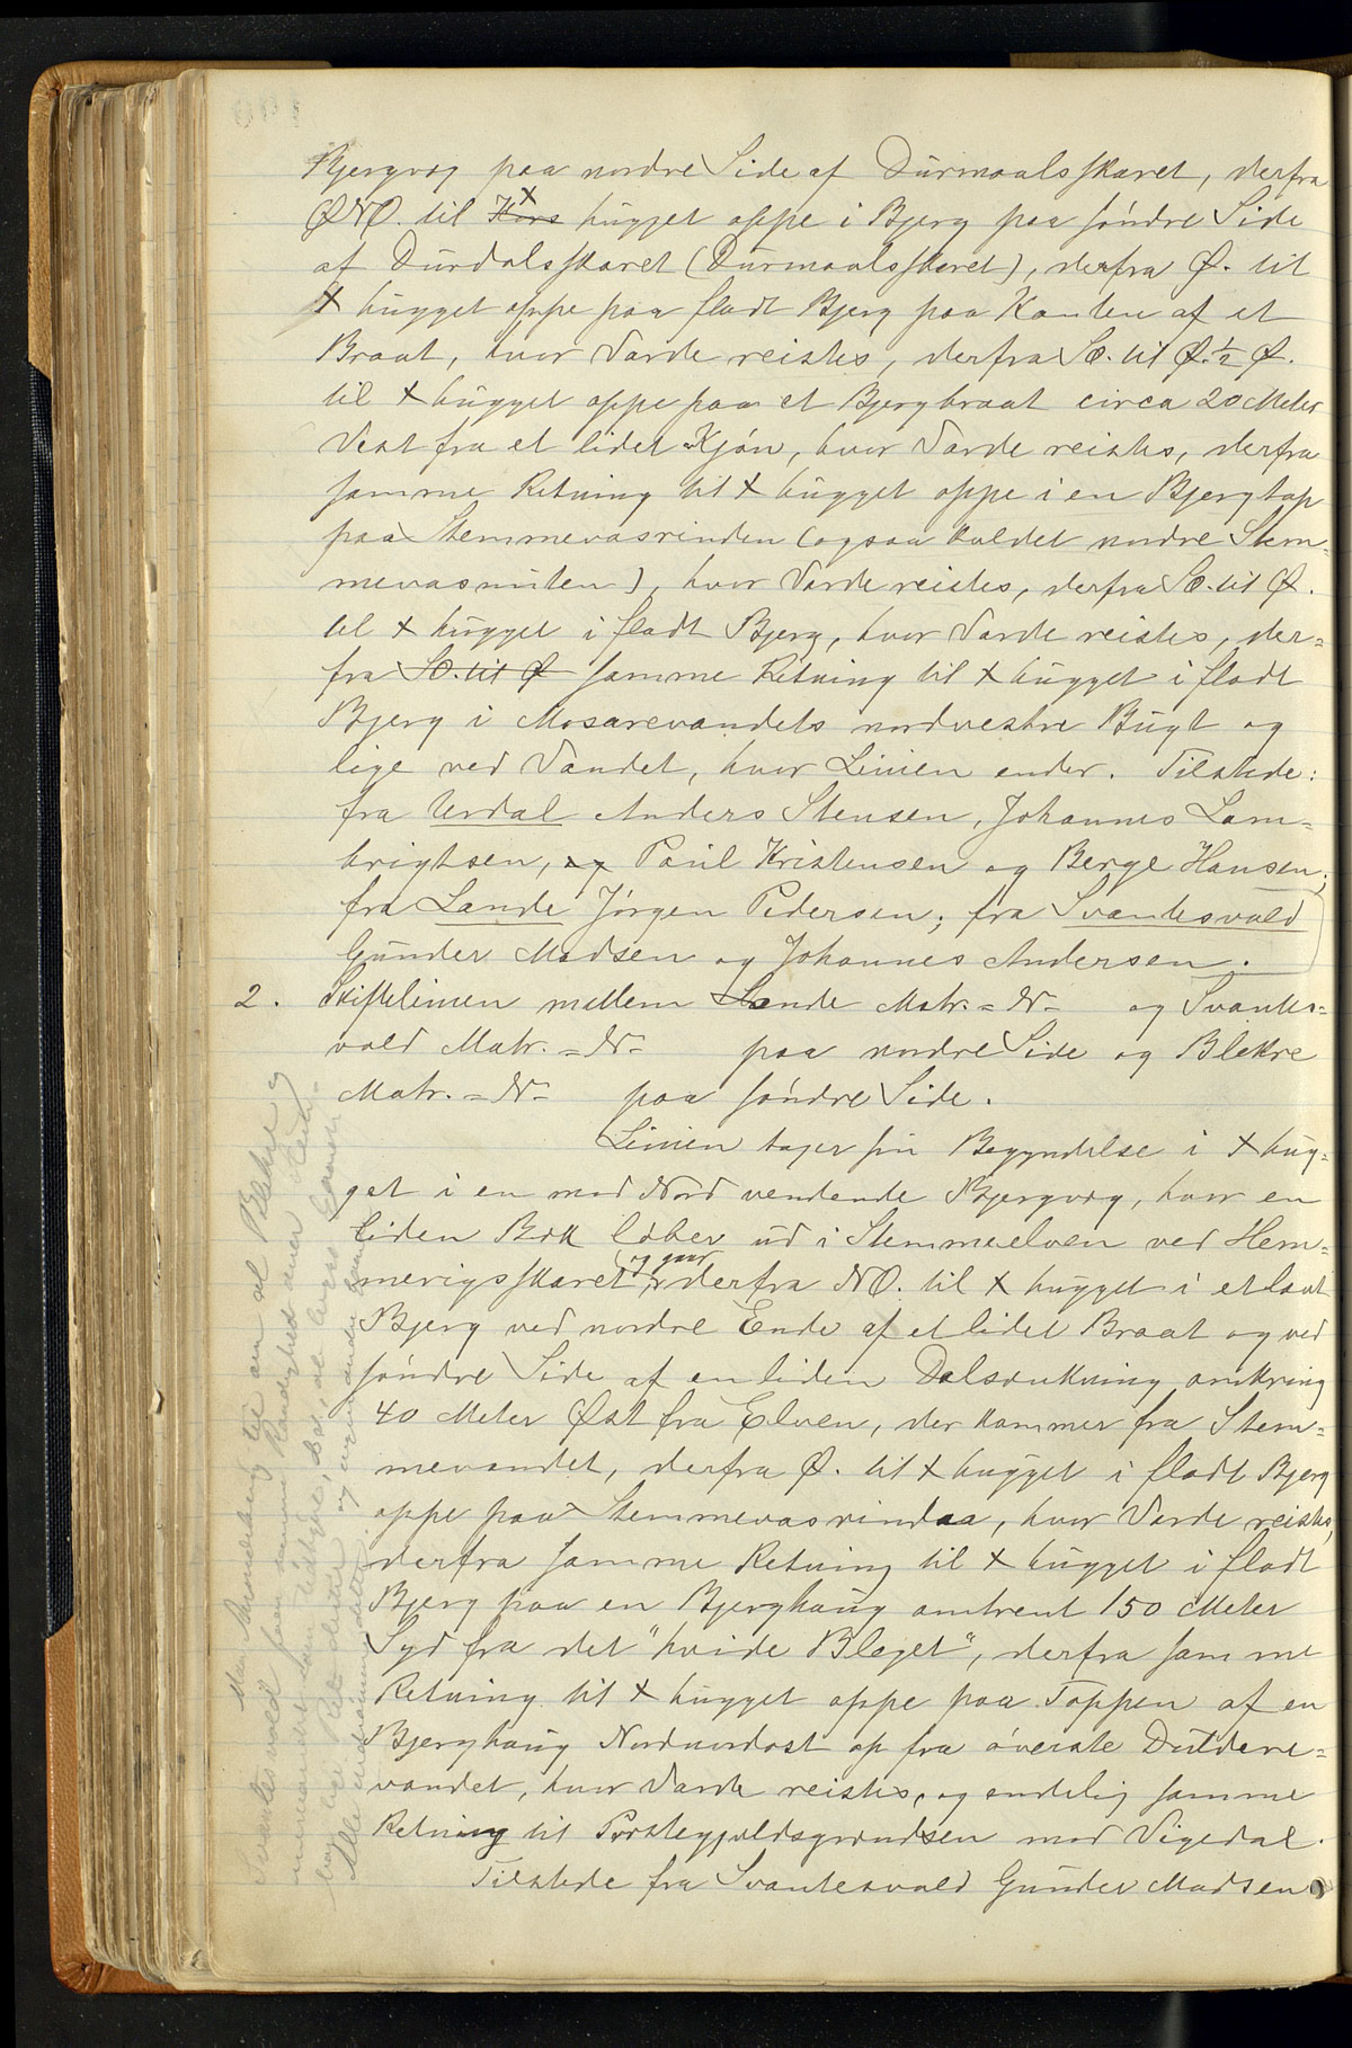 Bjergvæg paa nordre Side af Durmaalsskaret, derfra
ØNO. til Kors x hugget oppe i Bjerg paa søndre Side
af Durdalsskaret (Durmaalsskaret), derfra Ø. til
x hugget oppe paa fladt Bjerg paa Kanten af et
Braat, hvor Varde reistes, derfra SO. til Ø. ½ Ø.
til x hugget oppe paa et Bjergbraat circa 20 Meter
Vest fra et lidet Kjøn, hvor Varde reistes, derfra
samme Retning til x hugget oppe i en Bjergtop
paa Stemmevasrinden (ogsaa kaldet nordre Stem=
mevasnuten), hvor Varde reistes, derfra SO. til Ø.
til x hugget i fladt Bjerg, hvor Varde reistes, der=
fra SO. til Ø samme Retning til x hugget i fladt
Bjerg i Mosarevandets nordvestre Bugt og
lige ved Vandet, hvor Linien ender. Tilstede:
fra Urdal Anders Stensen, Johannes Lam=
brigtsen, og Paul Kristensen og Berge Hansen;
fra Lande Jørgen Pedersen; fra Svantesvold
Gunder Madsen og Johannes Andersen.
2. Skiftelinien mellem Lande Matr.=N= og Svantes=
vold Matr.=N= paa nordre Side og Blekre
Matr.=N= paa søndre Side.
Linien tager sin Begyndelse i x hug=
get i en mod Nord vendende Bjergvæg, hvor en
liden Bæk løber ud i Stemmeelven ved Hem=
merigsskaret, og gaar derfra NO. til x hugget i et lavt
Bjerg ved nordre Ende af et lidet Braat og ved
søndre Side af en liden Dalsænkning omkring
40 Meter Øst fra Elven, der kommer fra Stem=
mevandet, derfra Ø. til x hugget i fladt Bjerg
oppe paa Stemmevasrindaa, hvor Varde reistes,
derfra samme Retning til x hugget i fladt
Bjerg paa en Bjerghaug omtrent 150 Meter
Syd fra det "hvide Bleget", derfra samme
Retning til x hugget oppe paa Toppen af en
Bjerghaug Nordnordost op fra øverste Duldere=
vandet, hvor Varde reistes, og endelig samme
Retning til Præstegjældsgrændsen mod Vigedal.
Tilstede fra Svantesvold Gunder Madsen